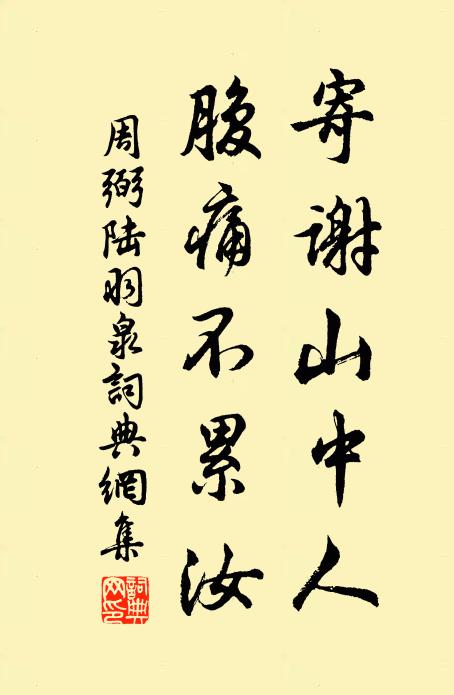 寄谢山中人
腹痛不累汝
周弼陆羽泉詞典網集
詞典网印